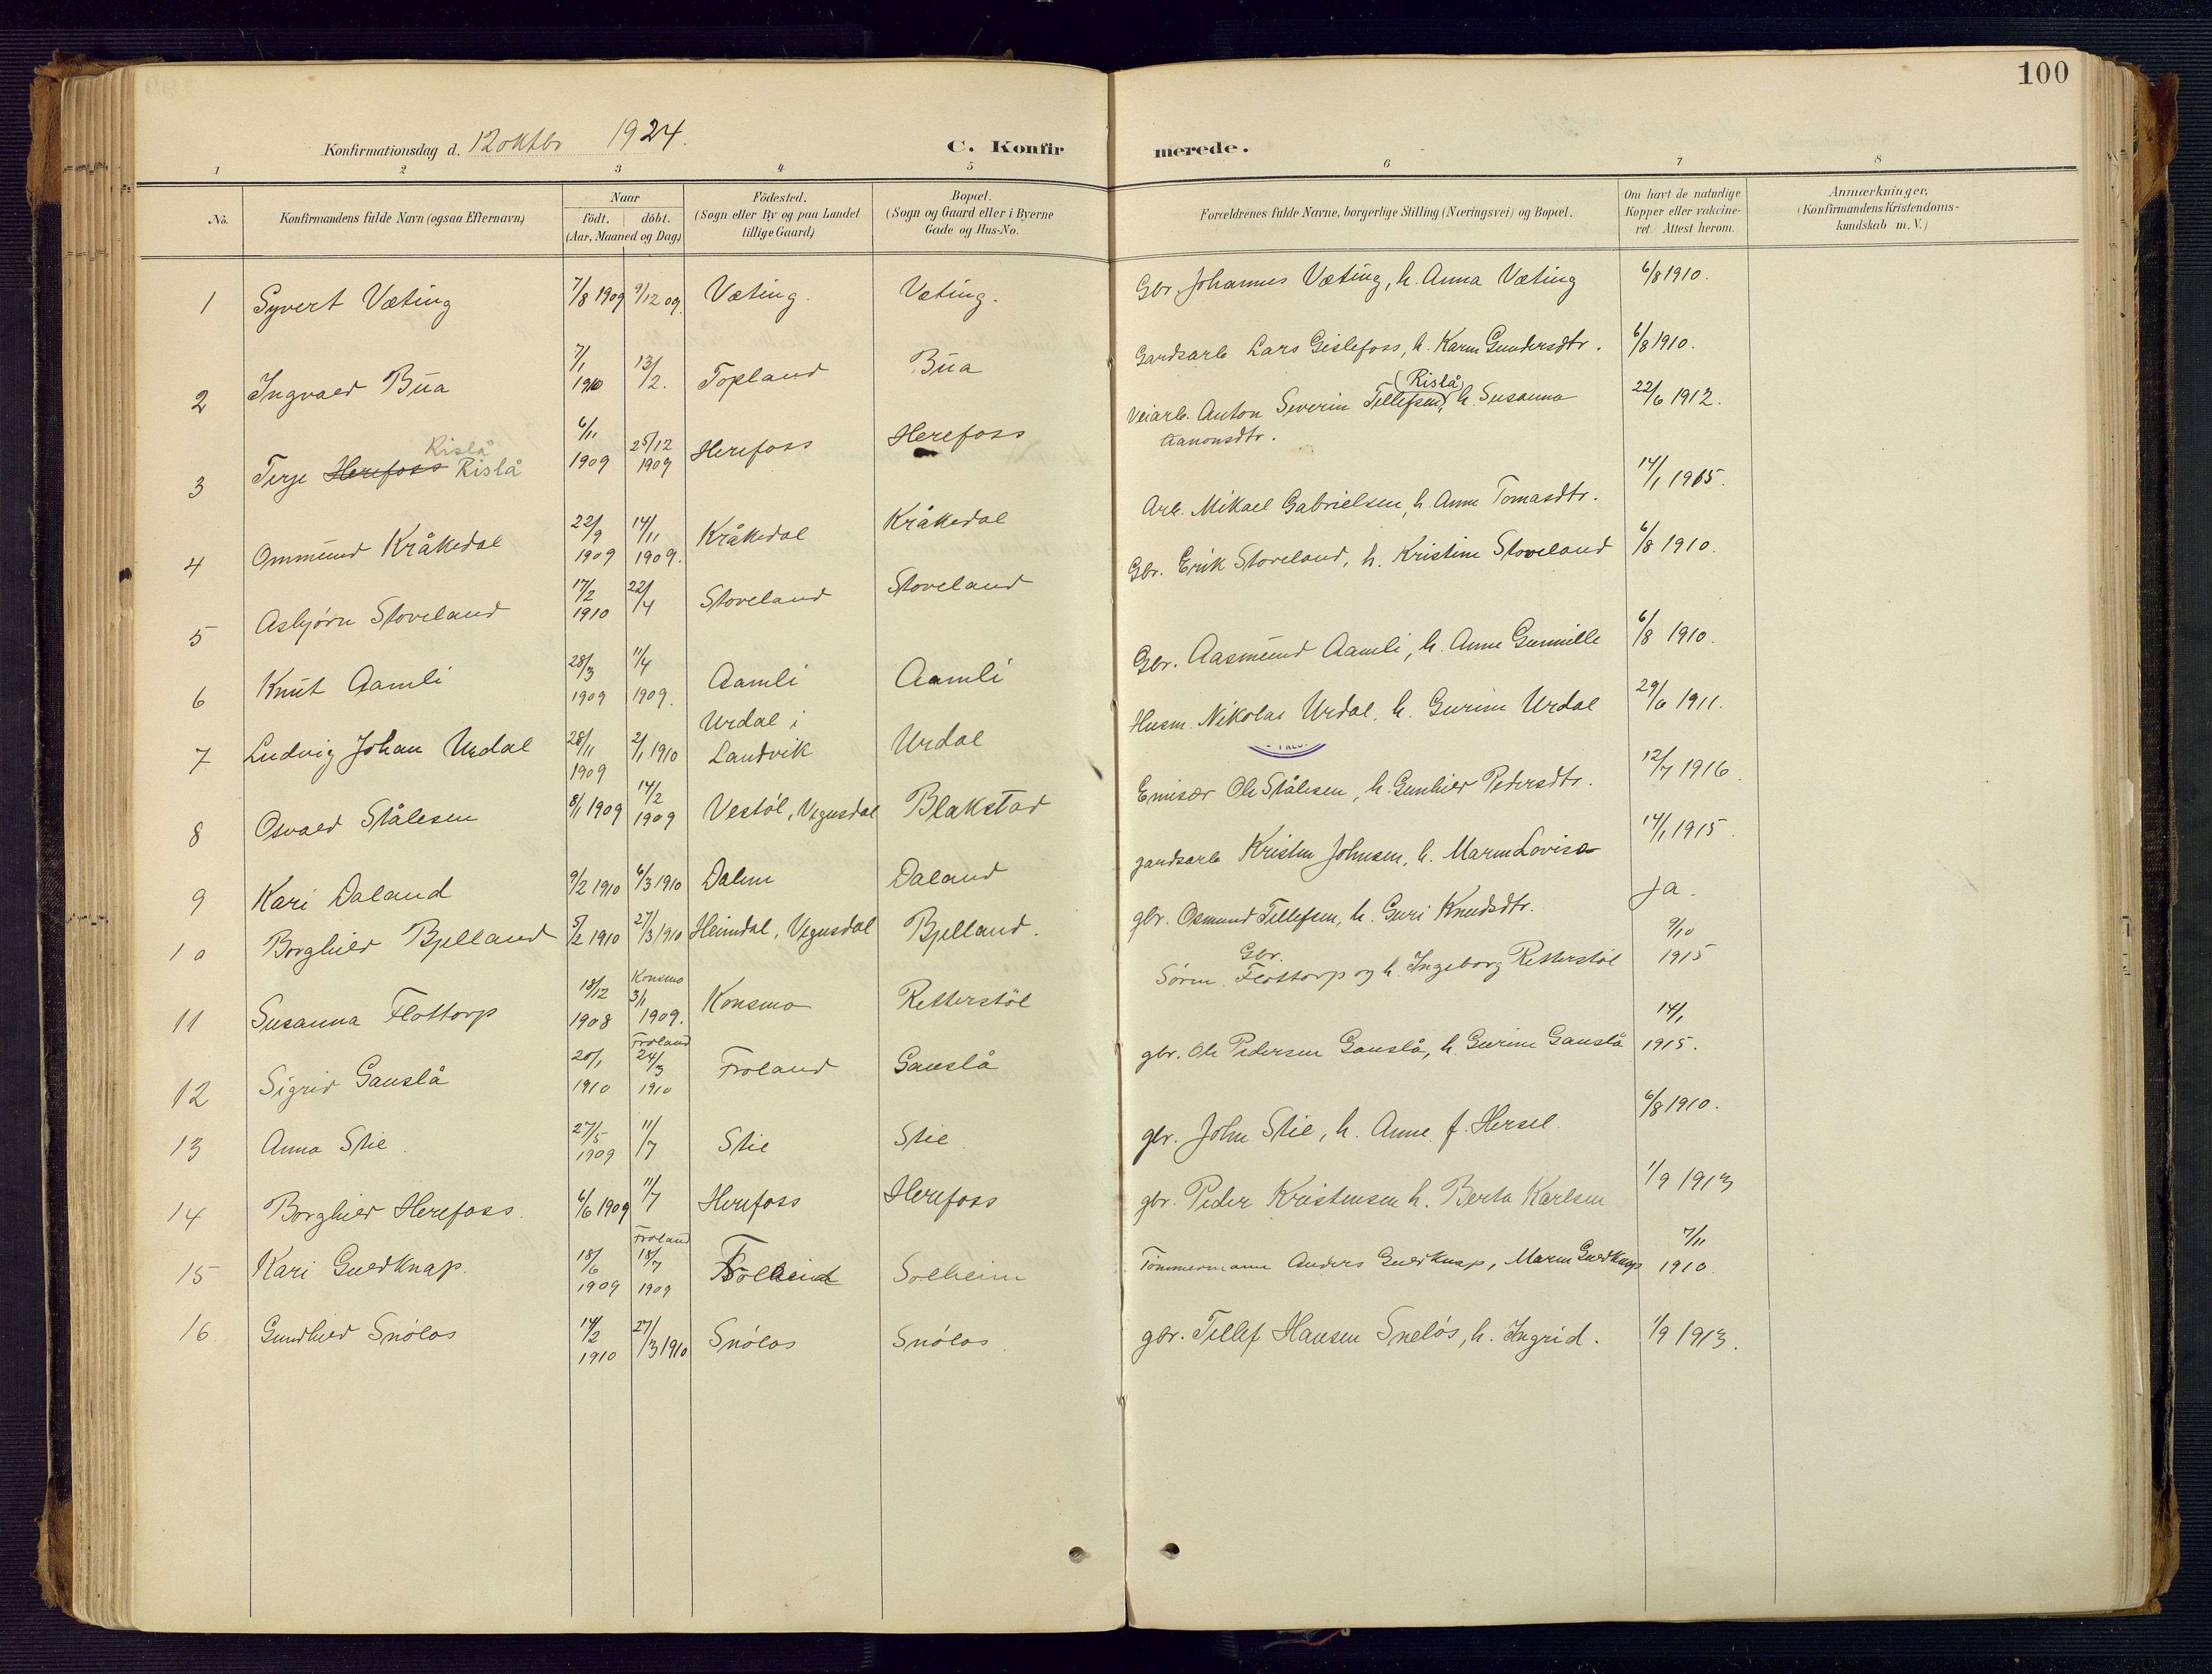 100
Konfirmationsdag d. 12 oktbr 1924.
C. Konfirmerede.
1 2 3 4 5 6 7 8
No.
Konfirmandens fulde Navn (ogsaa Efternavn)
Naar
födt. döbt.
(Aar, Maaned og Dag)
Födested.
(Sogn eller By og paa Landet
tillige Gaard)
Bopæl.
(Sogn og Gaard eller i Byerne
Gade og Hus-No.
Forældrenes fulde Navne, borgerlige Stilling (Næringsvei) og Bopæl.
Om havt de naturlige
Kopper eller vakcine-
ret. Attest herom.
Anmærkninger,
(Konfirmandens Kristendoms-
kundskab m. V.)
1 Syvert Væting 7/8 1909 9/12 09. Væting. Væting. Gbr. Johannes Væting, h. Anna Væting 6/8 1910.
2 Ingvald Bua 7/1 1910 13/2. Topland Bua Gardsarb Lars Gislefoss, h. Karen Gundersdtr. 6/8 1910.
3 Terje Herefoss Rislå Rislå 6/11 1909 25/12 1909 Herefoss Herefoss Veiarb. Anton Severin Tellefsen, (Rislå) h. Susanna
Aanonsdtr. 22/6 1912.
4 Ommund Kråkedal 22/9 1909 14/11 1909. Kråkedal Kråkedal Arb. Mikael Gabrielsen, h. Anne Tomasdtr. 14/1 1915.
5 Asbjørn Stoveland 17/2 1910 22/4 Stoveland Stoveland Gbr. Erik Stoveland, h. Kristine Stoveland 6/8 1910.
6 Knut Aamli 28/3 1909 11/4 1909. Aamli Aamli Gbr. Aasmund Aamli, h. Anne Gunnille 6/8 1910.
7 Ludvig Johan Urdal 28/11 1909 2/1 1910 Urdal i
Landvik Urdal Husm. Nikolai Urdal, h. Gurine Urdal 29/6 1911.
8 Osvald Stålesen 8/1 1909 14/2 1909 Vestöl, Vegusdal Blakstad Emisær Ole Stålesen, h. Gunhild Pedersdtr. 12/7 1916.
9 Kari Daland 9/2 1910 6/3 1910 Dalene Daland gardsarb Kristen Johnsen, h. Maren Lovise 14/1 1915.
10 Borghild Bjelland 5/2 1910 27/3 1910 Heimdal, Vegusdal Bjelland. gbr. Osmund Tellefsen, h. Guri Knudsdtr. ja.
11 Susanna Flottorp 18/12 1908 Konsmo 3/1 1909. Konsmo Retterstöl Gbr.
Sören Flottorp og h. Ingeborg Retterstöl 9/10 1915
12 Sigrid Gauslå 20/1 1910 Froland 24/3 1910 Froland Gauslå gbr. Ole Pedersen Gauslå, h. Gurine Gauslå 14/1 1915.
13 Anna Stie. 27/5 1909 11/7 Stie Stie gbr. John Stie, h. Anne f. Hersel. 6/8 1910.
14 Borghild Herefoss. 6/6 1909 11/7 Herefoss Herefoss gbr. Peder Kristensen h. Berta Karlsen 1/9 1913
15 Kari Guldknap. 18/6 1909 Froland 18/7 1909 Froland Solheim Tömmermann Anders Guldknap, Maren Guldknap 7/11 1910.
16. Gundhild Snölos 14/2 1910 27/3 1910 Snölos Snölos. gbr. Tellef Hansen Snelös, h. Ingrid. 1/9 1913.